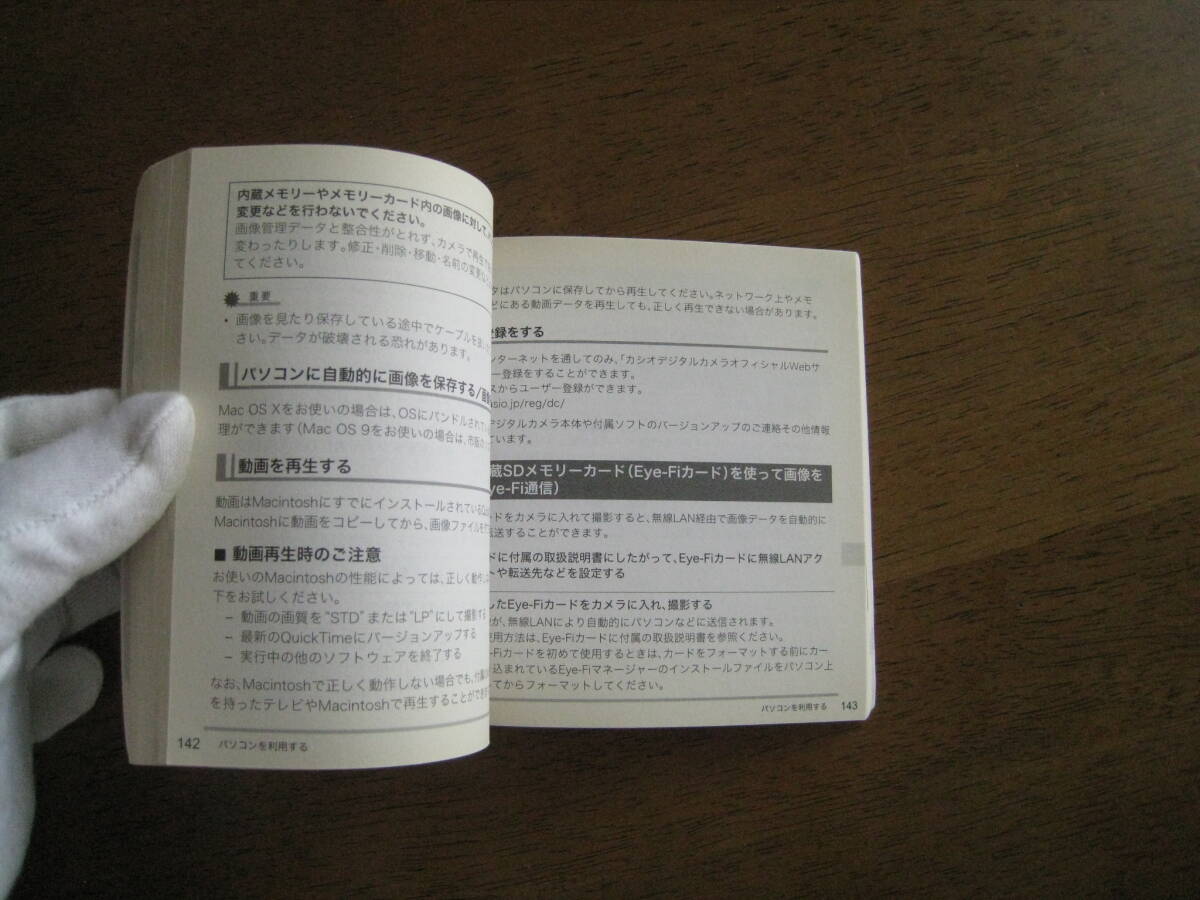 内蔵メモリーやメモリーカード内の画像に対して、
変更などを行わないでください。
画像管理データと整合性がとれず、カメラで再生で
変わったりします。修正・削除・移動・名前の変更な
てください。
重要
・ 画像を見たり保存している途中でケーブルを
さい。データが破壊される恐れがあります。
パソコンに自動的に画像を保存する/
Mac OS Xをお使いの場合は、OSにバンドルされてい
理ができます（Mac OS 9をお使いの場合は、市販の
動画を再生する
動画はMacintoshにすでにインストールされている
Macintoshに動画をコピーしてから、画像ファイルを
■ 動画再生時のご注意
お使いのMacintoshの性能によっては、正しく動作
下をお試しください。
– 動画の画質を“STD”または“LP”にして撮影する
– 最新のQuickTimeにバージョンアップする
– 実行中の他のソフトウェアを終了する
なお、Macintoshで正しく動作しない場合でも、付属の
を持ったテレビやMacintoshで再生することができ
142 パソコンを利用する
タはパソコンに保存してから再生してください。ネットワーク上やメモ
どにある動画データを再生しても、正しく再生できない場合があります。
登録をする
ンターネットを通してのみ、「カシオデジタルカメラオフィシャルWebサ
ー登録をすることができます。
スからユーザー登録ができます。
sio.jp/reg/dc/
デジタルカメラ本体や付属ソフトのバージョンアップのご連絡その他情報
ています。
蔵SDメモリーカード（Eye-Fiカード）を使って画像を
ye-Fi通信）
ードをカメラに入れて撮影すると、無線LAN経由で画像データを自動的に
転送することができます。
ドに付属の取扱説明書にしたがって、Eye-Fiカードに無線LANアク
トや転送先などを設定する
したEye-Fiカードをカメラに入れ、撮影する
が、無線LANにより自動的にパソコンなどに送信されます。
使用方法は、Eye-Fiカードに付属の取扱説明書を参照ください。
-Fiカードを初めて使用するときは、カードをフォーマットする前にカー
込まれているEye-Fiマネージャーのインストールファイルをパソコン上
してからフォーマットしてください。
パソコンを利用する 143